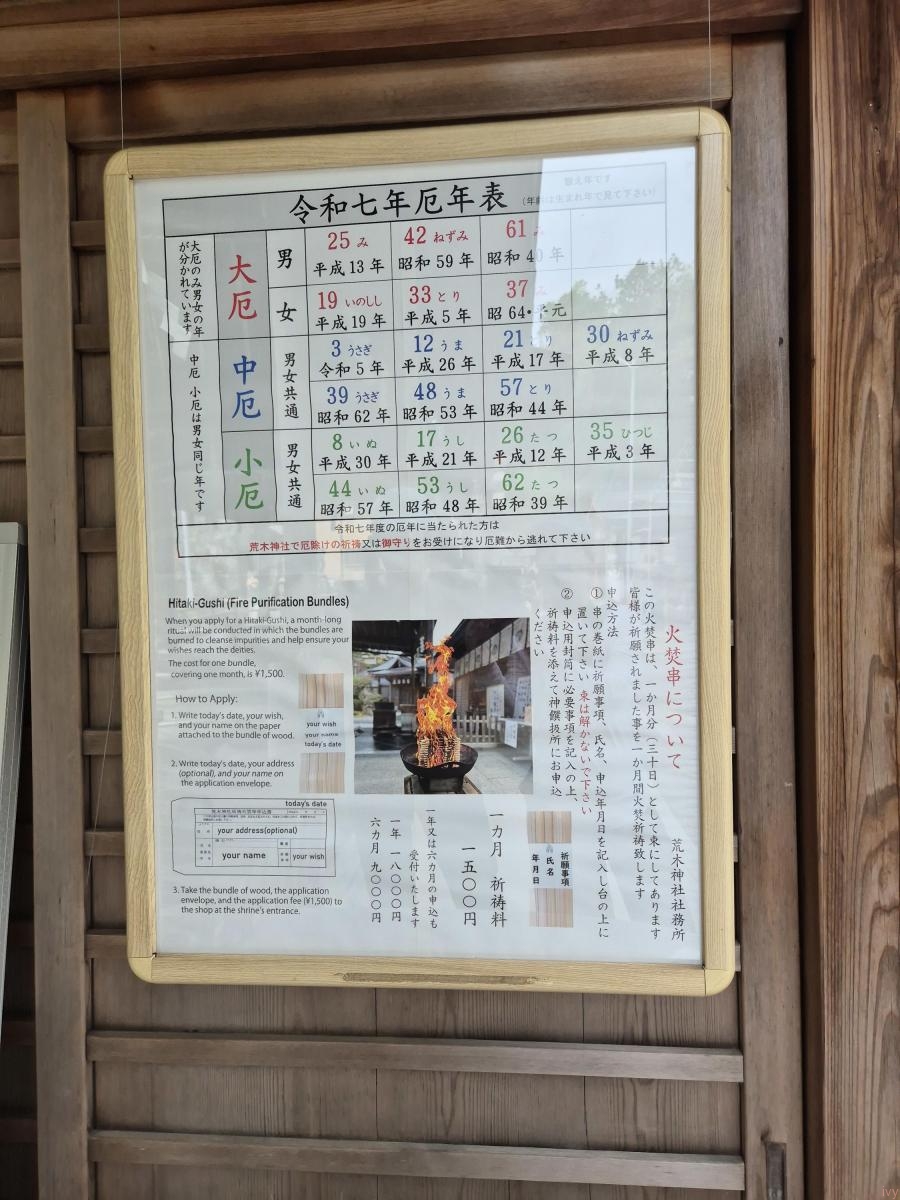 令和七年厄年表
数え年です
(年齢は生まれ年で見て下さい)
大厄のみ男女の年
が分かれています
大厄
男
25 み
平成13年
42 ねずみ
昭和59年
61 み
昭和40年
女
19 いのしし
平成19年
33 とり
平成5年
37 み
昭64・平元
中厄 小厄は男女同じ年です
中厄
男女共通
3 うさぎ
令和5年
12 うま
平成26年
21 とり
平成17年
30 ねずみ
平成8年
39 うさぎ
昭和62年
48 うま
昭和53年
57 とり
昭和44年
小厄
男女共通
8 いぬ
平成30年
17 うし
平成21年
26 たつ
平成12年
35 ひつじ
平成3年
44 いぬ
昭和57年
53 うし
昭和48年
62 たつ
昭和39年
令和七年度の厄年に当たられた方は
荒木神社で厄除けの祈祷又は御守りをお受けになり厄難から逃れて下さい
Hitaki-Gushi (Fire Purification Bundles)
When you apply for a Hitaki-Gushi, a month-long
ritual will be conducted in which the bundles are
burned to cleanse impurities and help ensure your
wishes reach the deities.
The cost for one bundle,
covering one month, is ¥1,500.
How to Apply:
1. Write today's date, your wish,
and your name on the paper
attached to the bundle of wood.
your wish
your name
today's date
2. Write today's date, your address
(optional), and your name on
the application envelope.
today's date
your address(optional)
your name
your wish
3. Take the bundle of wood, the application
envelope, and the application fee (¥1,500) to
the shop at the shrine's entrance.
火焚串について
荒木神社社務所
この火焚串は、一か月分(三十日)として束にしてあります
皆様が祈願されました事を一か月間火焚祈祷致します
申込方法
① 串の巻紙に祈願事項、氏名、申込年月日を記入し台の上に
置いて下さい 束は解かないで下さい
② 申込用封筒に必要事項を記入の上、
祈祷料を添えて神饌扱所にお申込
ください
祈願事項
氏名
年月日
一カ月 祈祷料
一五〇〇円
一年又は六カ月の申込も
受付いたします
一年 一八〇〇〇円
六カ月 九〇〇〇円
ivy